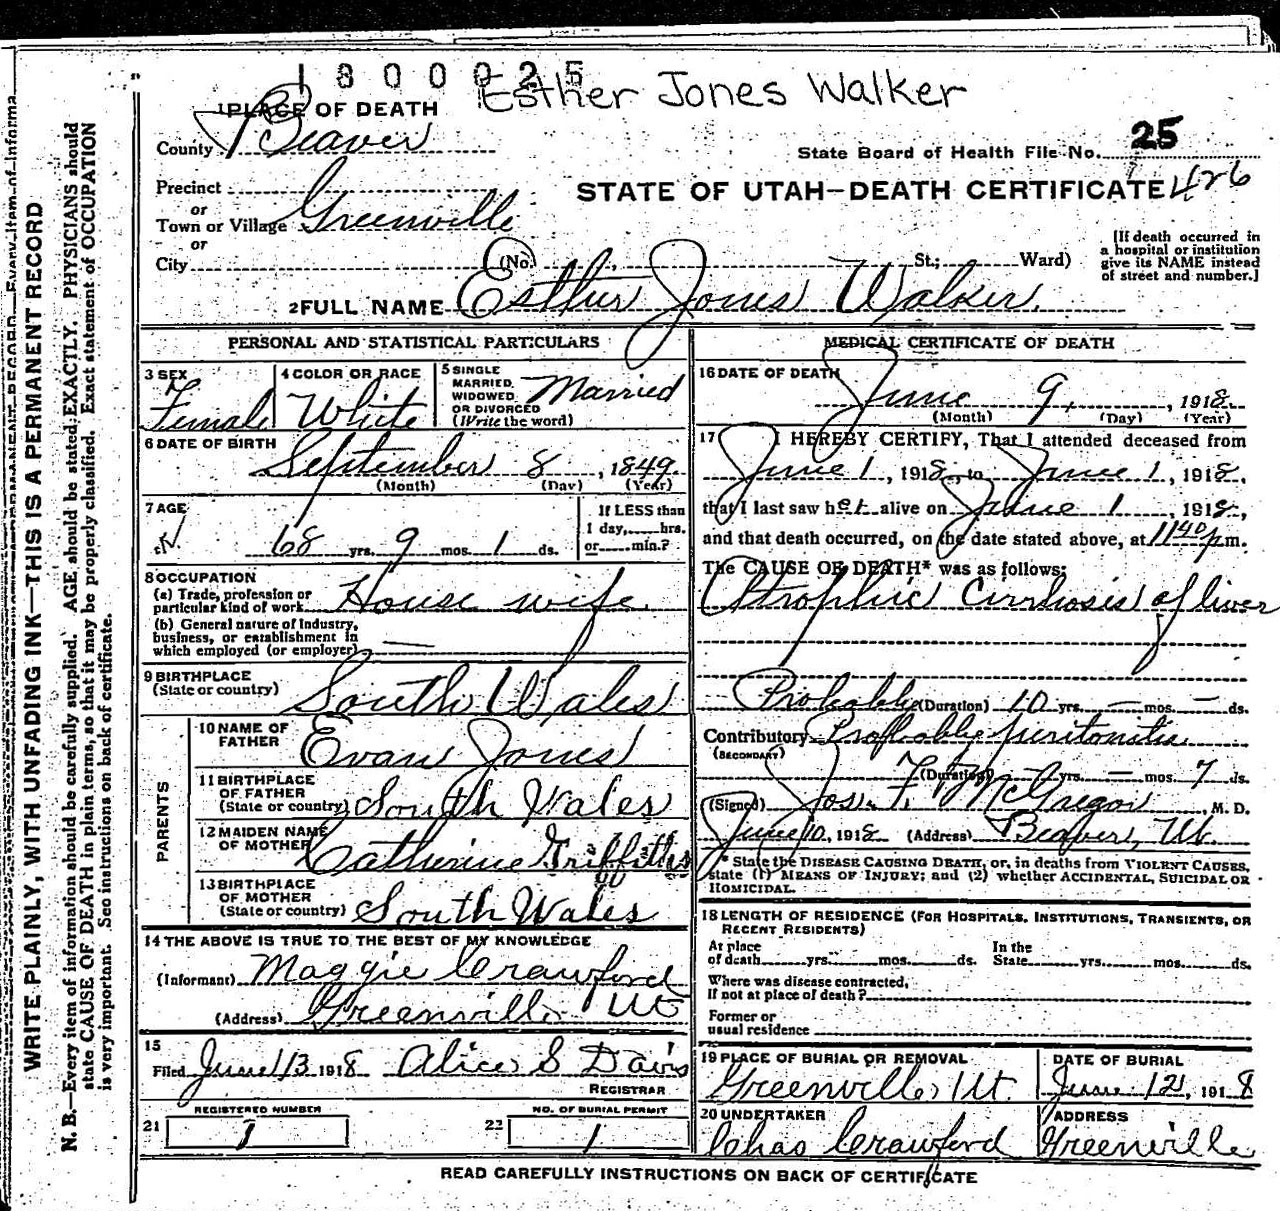 1800025
Esther Jones Walker
1 PLACE OF DEATH
County Beaver
State Board of Health File No. 25
Precinct
STATE OF UTAH—DEATH CERTIFICATE 426
or
Town or Village Greenville
or
City (No. St.; Ward)
[If death occurred in
a hospital or institution
give its NAME instead
of street and number.]
2 FULL NAME Esther Jones Walker.
PERSONAL AND STATISTICAL PARTICULARS
3 SEX
Female
4 COLOR OR RACE
White
5 SINGLE
MARRIED,
WIDOWED
OR DIVORCED
(Write the word)
Married
6 DATE OF BIRTH
September 8, 1849.
(Month) (Day) (Year)
7 AGE
68 yrs. 9 mos. 1 ds.
If LESS than
1 day, hrs.
or min.?
8 OCCUPATION
(a) Trade, profession or
particular kind of work House wife.
(b) General nature of industry,
business, or establishment in
which employed (or employer) —
9 BIRTHPLACE
(State or country) South Wales
PARENTS
10 NAME OF
FATHER Evan Jones
11 BIRTHPLACE
OF FATHER
(State or country) South Wales
12 MAIDEN NAME
OF MOTHER Catherine Griffiths
13 BIRTHPLACE
OF MOTHER
(State or country) South Wales
14 THE ABOVE IS TRUE TO THE BEST OF MY KNOWLEDGE
(Informant) Maggie Crawford
(Address) Greenville Ut
15
Filed June 13 1918 Alice S Davis
REGISTRAR
REGISTERED NUMBER
21 1
NO. OF BURIAL PERMIT
22 1
MEDICAL CERTIFICATE OF DEATH
16 DATE OF DEATH
June 9, 1918.
(Month) (Day) (Year)
17 I HEREBY CERTIFY, That I attended deceased from
June 1, 1918, to June 1, 1918.,
that I last saw her alive on June 1, 1918.,
and that death occurred, on the date stated above, at 11 40 p.m.
The CAUSE OF DEATH* was as follows:
Atrophic Cirrhosis of liver
Probably (Duration) 10 yrs. — mos. — ds.
Contributory Probably peritonitis
(SECONDARY)
(Duration) — yrs. — mos. 7 ds.
(Signed) Jos. F. McGregor, M. D.
June 10, 1918 (Address) Beaver, Ut.
* State the DISEASE CAUSING DEATH, or, in deaths from VIOLENT CAUSES,
state (1) MEANS OF INJURY; and (2) whether ACCIDENTAL, SUICIDAL OR
HOMICIDAL.
18 LENGTH OF RESIDENCE (FOR HOSPITALS, INSTITUTIONS, TRANSIENTS, OR
RECENT RESIDENTS)
At place
of death yrs. mos. ds.
In the
State yrs. mos. ds.
Where was disease contracted,
if not at place of death?
Former or
usual residence
19 PLACE OF BURIAL OR REMOVAL
Greenville, Ut.
DATE OF BURIAL
June 12, 1918
20 UNDERTAKER
Chas Crawford
ADDRESS
Greenville
READ CAREFULLY INSTRUCTIONS ON BACK OF CERTIFICATE
WRITE PLAINLY, WITH UNFADING INK—THIS IS A PERMANENT RECORD
N. B.—Every item of information should be carefully supplied. AGE should be stated EXACTLY. PHYSICIANS should
state CAUSE OF DEATH in plain terms, so that it may be properly classified. Exact statement of OCCUPATION
is very important. See instructions on back of certificate.